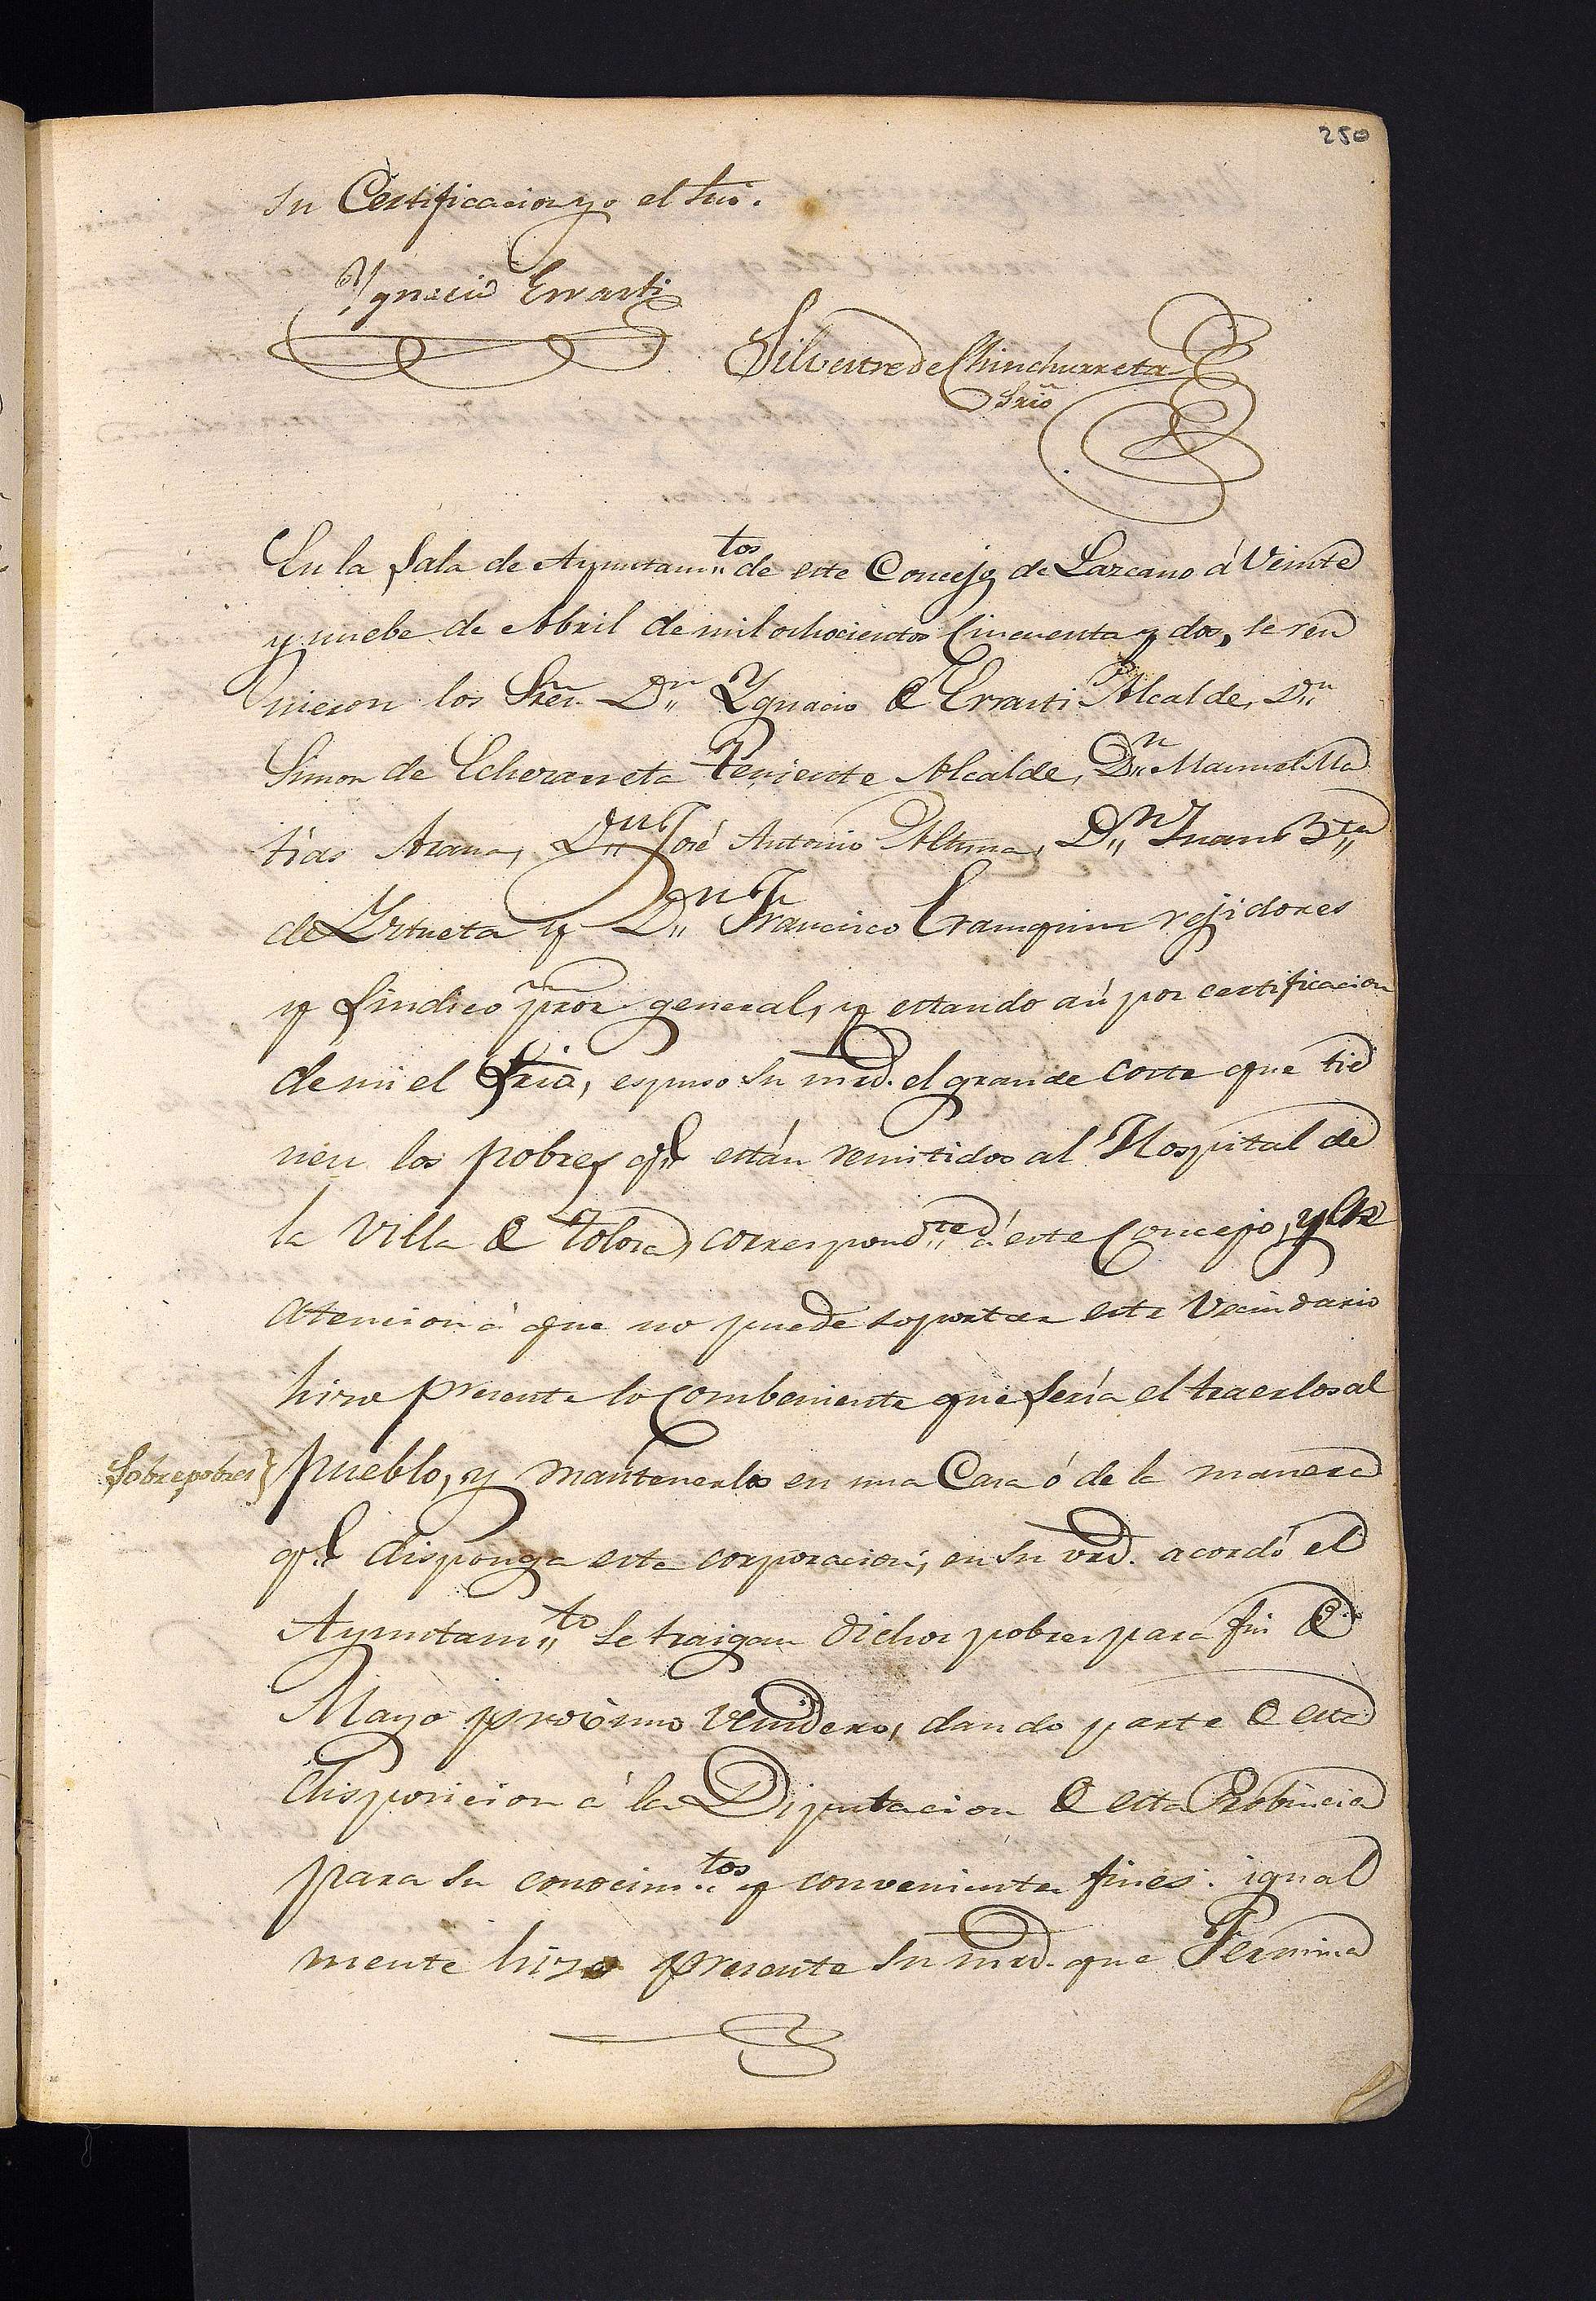 250
su Certificacion yo el Srio.
Ygnacio Errasti
Silvestre de Chinchurreta
Srio
En la Sala de Ayuntam.tos de este Concejo de Lazcano á Veinte
y nuebe de Abril de mil ochocientos Cincuenta y dos, se reu
nieron los Sres. Dn Ygnacio de Errasti Alcalde, Dn
Simon de Echezarreta Teniente Alcalde, Dn Manuel Ma
tias Arana, Dn José Antonio Altuna, Dn Juan Bta
de Yztueta y Dn Francisco rejidores
y Sindico pror general, y estando así por certificacion
de mi el Srio, espuso Su mrd. el grande coste que tie
nen los pobres qe están remitidos al Hospital de
la Villa de Tolosa, correspondtes á este Concejo, y en
atencion á que no puede soportar este Vecindario
hizo presente lo combeniente que sería el traerlos al
Sobre pobres} pueblo, y mantenerlos en una Casa ó de la manera
qe disponga esta corporacion, en su vrd. acordó el
Ayuntam.to se traigan dichos pobres para fin de
Mayo procimo venidero, dando parte de esta
disposicion á la Diputacion de esta Probincia
para su conocim.tos y convenientes fines: igual
mente hizo presente Su mrd. que Fermina